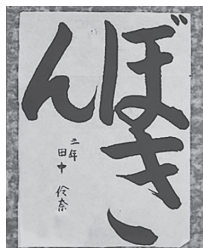 ぼきん
二年
田中 伶奈